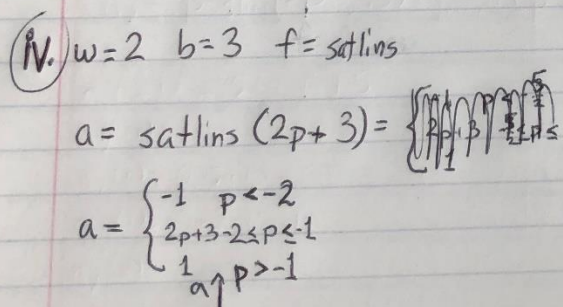 iv. w=2 b=3 f= satlins
a= satlins (2p+3)= {
a= { -1 p<-2
2p+3 -2≤p≤-1
1 p>-1
a↑